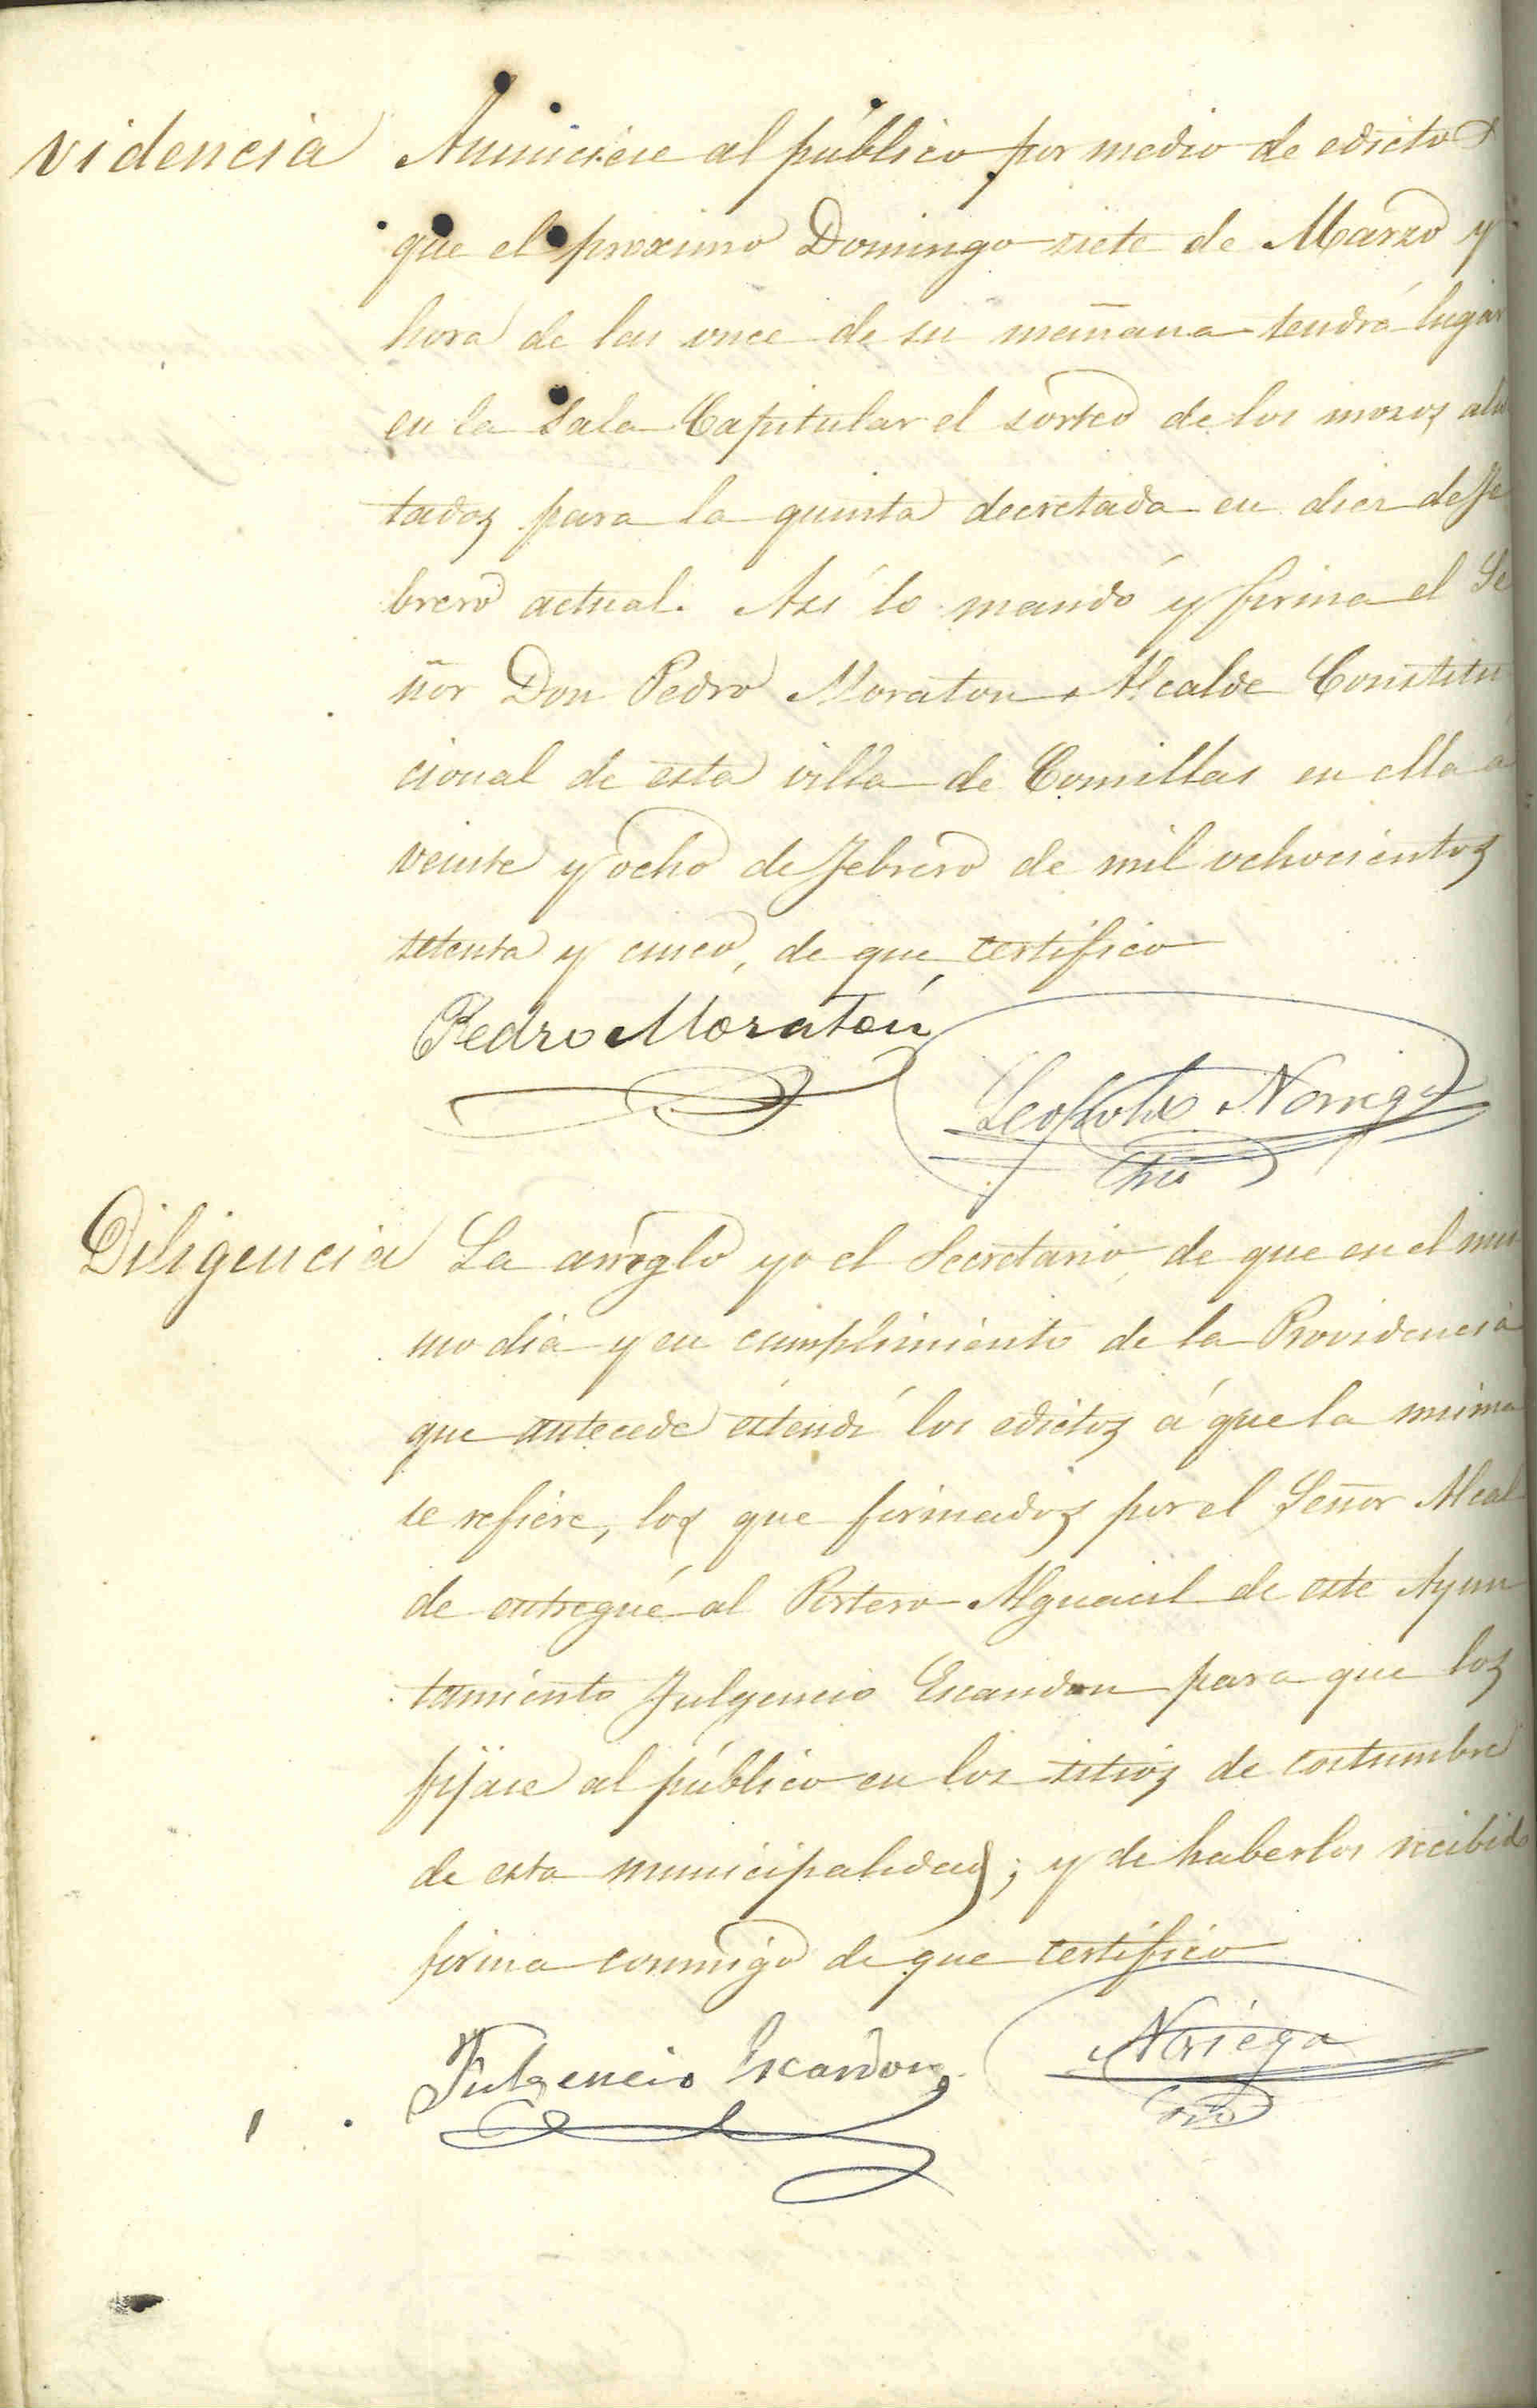 videncia Anunciese al público por medio de edictos
que el proximo Domingo siete de Marzo y
hora de las once de su mañana tendrá lugar
en la Sala Capitular el sorteo de los mozos alis
tados para la quinta decretada en diez de Fe
brero actual. Asi lo mandó y firma el Se
ñor Don Pedro Moraton Alcalde Constitu
cional de esta villa de Comillas en ella á
veinte y ocho de Febrero de mil ochocientos
setenta y cinco, de que certifico
Pedro Moratón
Leopoldo Noriega
Srio
Diligencia La arreglo yo el Secretario de que en el mis
mo dia y en cumplimiento de la Providencia
que antecede estendí los edictos á que la misma
se refiere, los que firmados por el Señor Alcal
de entregué al Portero Alguacil de este Ayun
tamiento Fulgencio Escandon para que los
fijase al público en los sitios de costumbre
de esta municipalidad; y de haberlos recibido
firma conmigo de que certifico
Fulgencio Escandon
Noriega
Srio